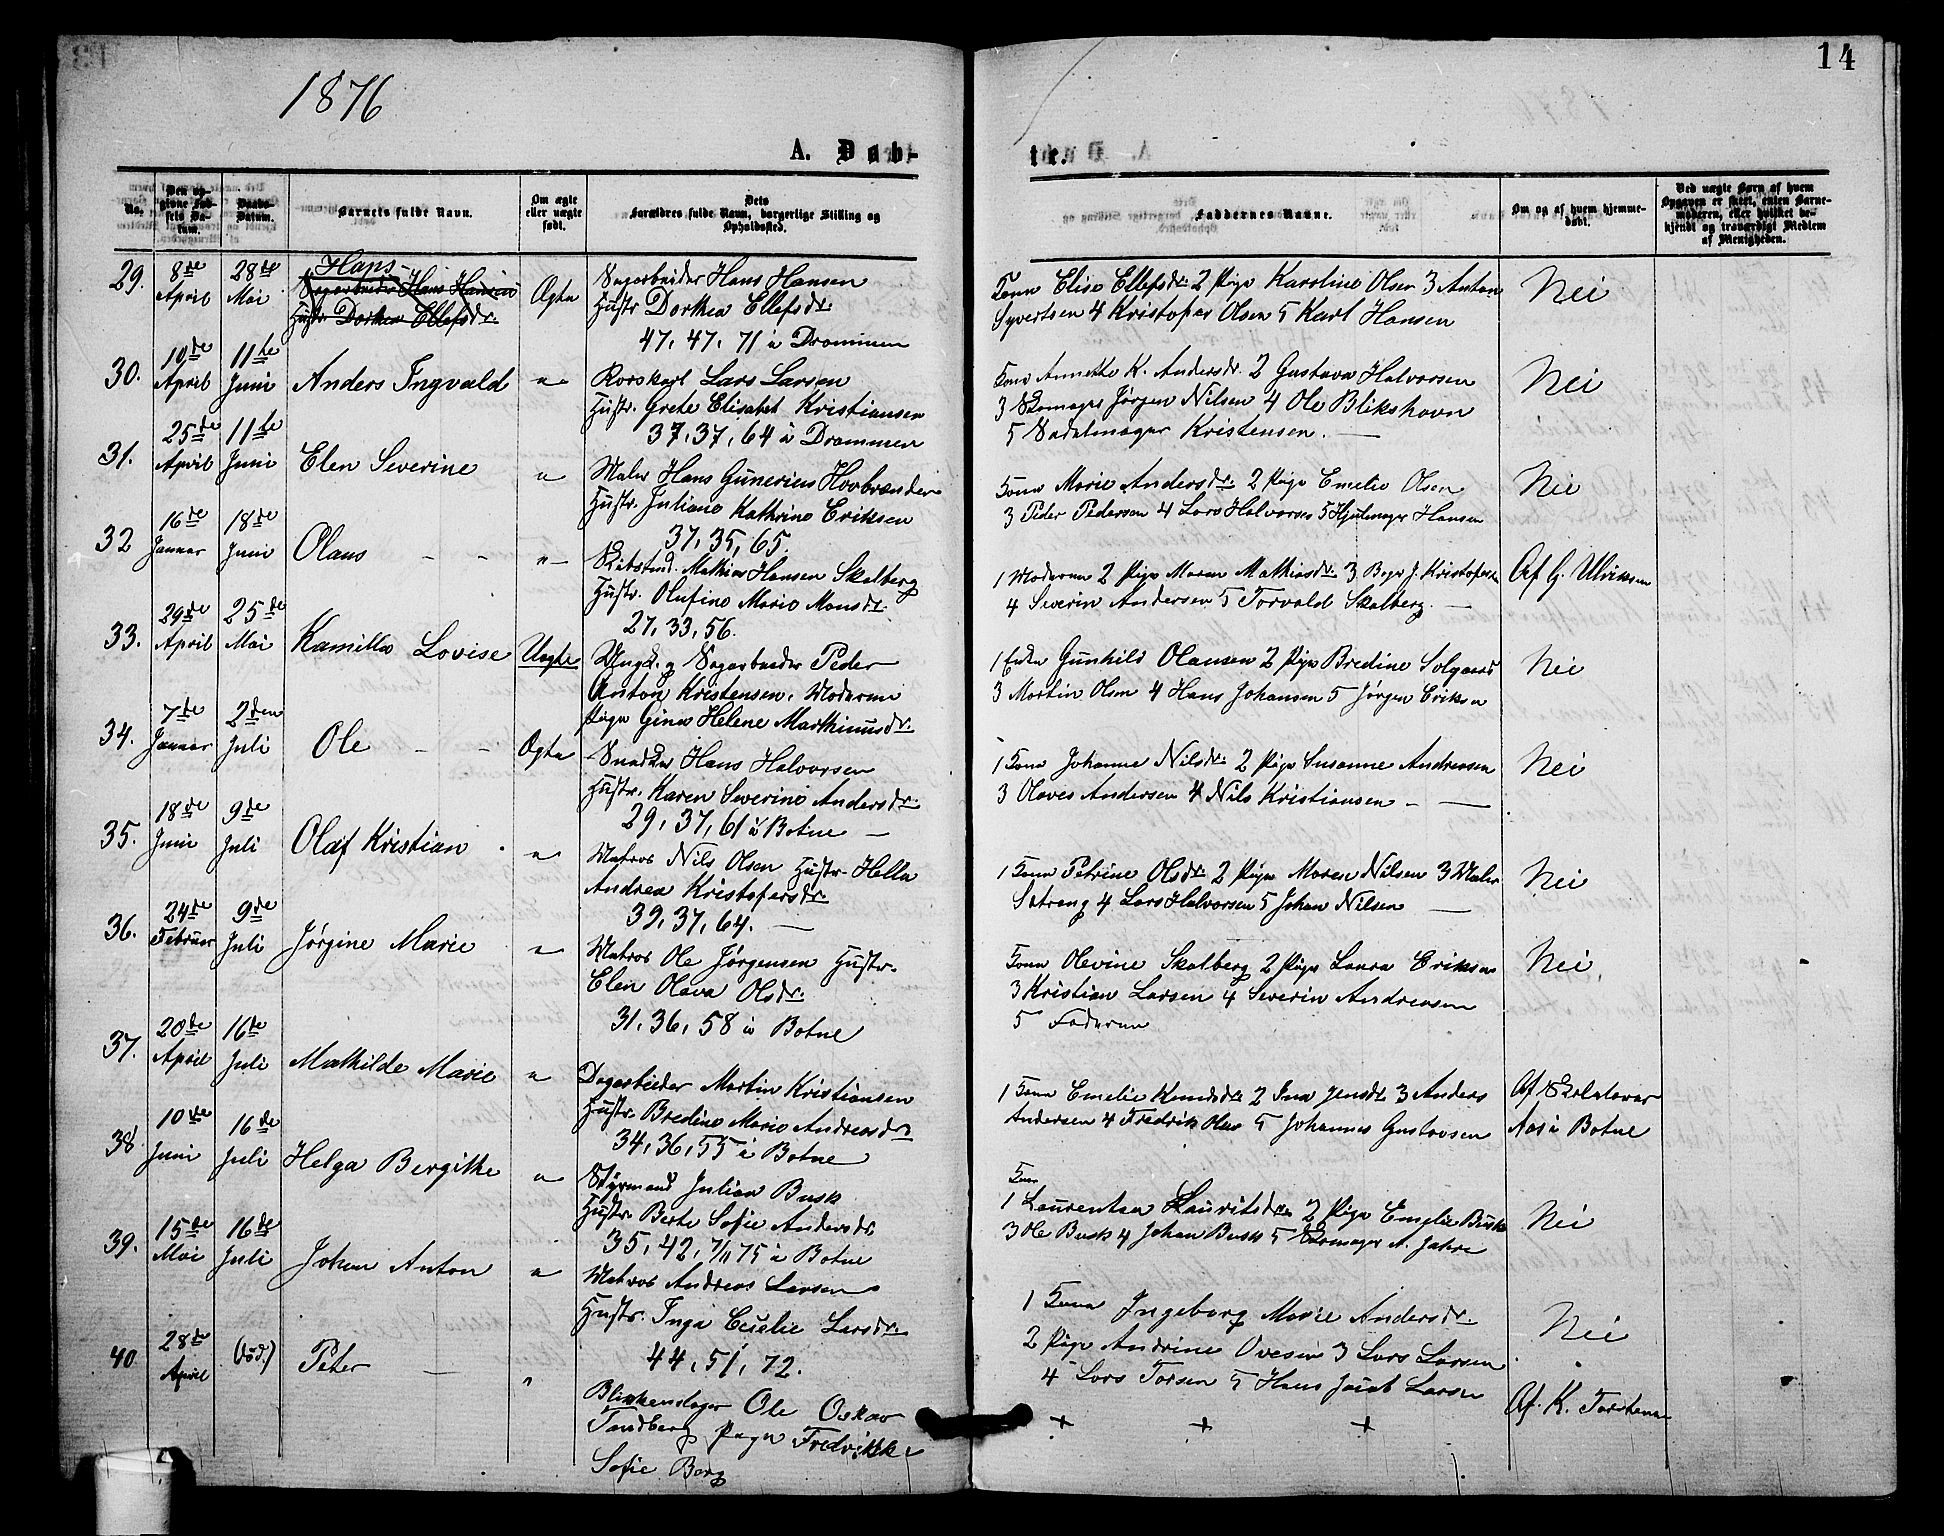 14
1876
A. Døb-
te.
No.
Den opgivne Fødsels Datum.
Daabs-Datum.
Barnets fulde Navn.
Om ægte eller uægte født.
Dets Forældres fulde Navn, borgerlige Stilling og Opholdssted.
Faddernes Navne.
Om og af hvem hjemmedøbt.
Ved uægte Børn af hvem Opgaven er skeet, enten Barnemoderen, eller hvilket bekjendt og troværdigt Medlem af Menigheden.
29. 8de April 28de Mai Hans Ægte
Sagarbeider Hans Hansen
Hustr. Dorthea Ellefsdr.
Sagarbeider Hans Hansen
Hustr Dorthea Ellefsdr.
47, 47, 71 i Drammen
Kona Elise Ellefsdr. 2 Pige Karoline Olsen 3 Anton
Syvertsen 4 Kristofer Olsen 5 Karl Hansen
Nei
30. 10de April 11te Juni Anders Ingvald "
Lars Larsen
Hustr. Grete Elisabet Kristiansen
37, 37, 64 i Drammen
Kona Annette K. Andersdr. 2 Gustava Halvorsen
3 Skomager Jørgen Nilsen 4 Ole Blikshavn
5 Sadelmager Kristensen.
Nei
31. 25de April 11te Juni Elen Severine "
Maler Hans Gunerius
Hustr. Juliane Kathrine Eriksen
37, 35, 65.
Kona Marie Andersdr. 2 Pige Emelie Olsen
3 Peder Pedersen 4 Lars Halvorsen 5 Hjulmager Hansen
Nei
32 16de Januar 18de Juni Olaus "
Mathias Hansen Skalberg
Hustr. Olufine Marie Monsdr.
27, 33, 56.
1 Moderen 2 Pige Maren Mathiasdr. 3
4 Severin Andersen 5 Torvald Skalberg.
Af G. Ulriksen
33. 29de April 25de Mai Kamilla Lovise Uægte
Ungk. og Sagarbeider Peder
Anton Kristensen, Moderen
Pige Gina Helene Marthinusdr.
1 Enke Gunhild Olausen 2 Pige Bredine Solgaard
3 Martin Olsen 4 Hans Johansen 5 Jørgen Eriksen
Nei
34. 7de Januar 2den Juli Ole Ægte
Snedker Hans Halvorsen
Hustr. Karen Severine Andersdr.
29, 37, 61 i Botne
1 Kona Johanne Nilsdr. 2 Pige Susanne Andreasen
3 Olaves Andersen 4 Nils Kristiansen
Nei
35. 18de Juni 9de Juli Olaf Kristian "
Matros Nils Olsen Hustr. Helle
Andrea Kristofersdr.
39, 37, 64.
1 Kona Petrine Olsdr. 2 Pige Maren Nilsen 3 Maler
Satrang 4 Lars Halvorsen 5 Johan Nilsen
Nei
36. 24de Februar 9de Juli Jørgine Marie "
Matros Ole Jørgensen Hustr.
Elen Olava Olsdr.
31, 36, 58 i Botne
Kona Olevine Skalberg 2 Pige Laura Eriksen
3 Kristian Larsen 4 Severin Andreasen
5 Faderen
Nei.
37. 20de April 16de Juli Mathilde Marie "
Dagarbeider Martin Kristiansen
Hustr. Bredine Marie Andreasdr.
34, 36, 55 i Botne
1 Kona Emelie Knudsdr. 2 Ina Jensdr. 3 Anders
Andersen 4 Fredrik Olsen 5 Johannes Gustavsen
Af Skolelærer
Aas i Botne
38 10de Juni 16de Juli Helga Bergitte "
Styrmand Julian Busk
Hustr. Berte Sofie Andersdr.
35, 42, 7/11 75 i Botne
Kona
1 Laurentsa Lauritsdr. 2 Pige Emelie Busk
3 Ole Busk 4 Johan Busk 5 Skomager A. Jahre
Nei
39. 15de Mai 16de Juli Johan Anton "
Matros Andreas Larsen
Hustr. Inga Cecelie Larsdr.
44, 51, 72.
1 Kona Ingeborg Marie Andersdr.
2 Pige Andrine Ovesen 3 Lars Larsen
4 Lars Torsen 5 Hans Jacob Larsen
Nei
40 28de April (død.) Peter "
Blikkenslager Ole Oskar
Tandberg Pige Fredrikke
Sofie Berg
+ + +
Af. K. Torstensen